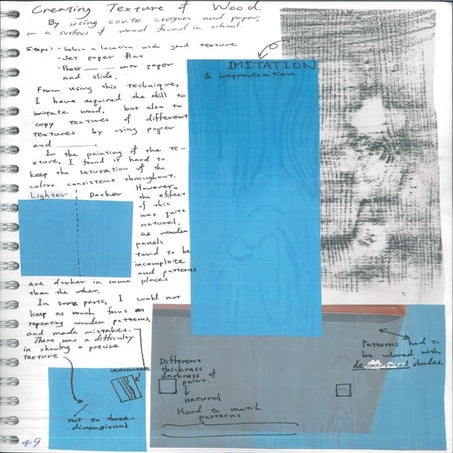 Creating Texture of Wood.
By using conte crayon and paper,
on a surface of wood found in school
Steps: - Select a location with good texture
- Set paper flat
- Place onto paper
and slide.
From using this technique,
I have acquired the skill to
imitate wood, but also to
copy textures of different
textures by using paper
and
In the painting of the te-
xture, I found it hard to
keep the saturation of the
colors consistent throughout.
Lighter Darker
However,
the effect
of this
was quite
natural,
as wooden
panels
tend to be
incomplete
and patterns
are darker in some places
than the other.
In some parts, I could not
keep as much focus on
repeating wooden patterns,
and made mistakes.
There was a difficulty
in showing a precise
texture
IMITATION
& improvisation
inaccurate
not to three-
dimensional
Different
thickness
darkness of
paint.
natural
Hard to match
patterns
Patterns had to
be colored with
desaturated shades.
49